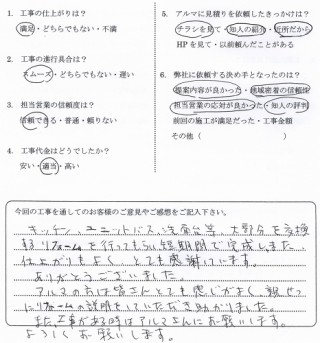 1. 工事の仕上がりは？
満足・どちらでもない・不満
2. 工事の進行具合は？
スムーズ・どちらでもない・遅い
3. 担当営業の信頼度は？
信頼できる・普通・頼りない
4. 工事代金はどうでしたか？
安い・適当・高い
5. アルマに見積りを依頼したきっかけは？
チラシを見て・知人の紹介・近所だから
HPを見て・以前頼んだことがある
6. 弊社に依頼する決め手となったのは？
提案内容が良かった・地域密着の信頼性
担当営業の応対が良かった・知人の評判
前回の施工が満足だった・工事金額
その他（　　　　　　）
今回の工事を通してのお客様のご意見やご感想をご記入下さい。
キッチン、ユニットバス、洗面台等、大部分を交換
するリフォームを行ってもらい短期間で完成しました。
仕上がりもよく、とても感謝しています。
ありがとうございました。
アルマの方は皆さんとても感じがよく、親せつ
にリフォームの説明をしていただき助かりました。
また工事がある時はアルマさんにお願いします。
よろしくお願いします。